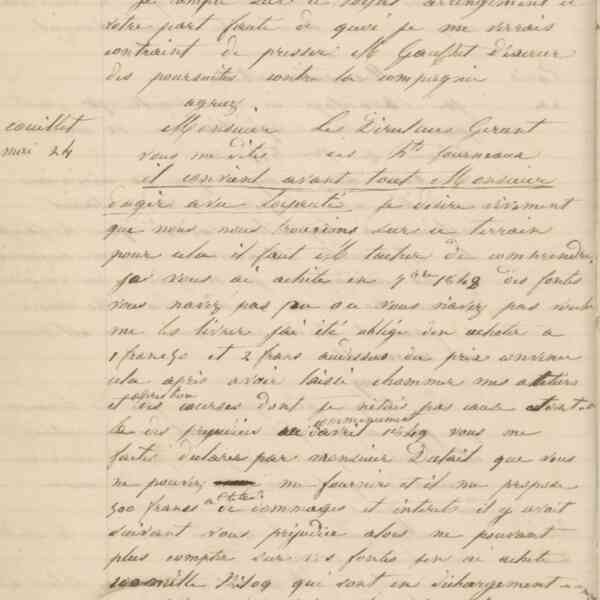 Je compte sur
votre part faute de quoi je me verrais
contraint de presser M
des poursuites contre la compagnie
agréez
couillet
mai 24
Monsieur Les Directeurs Gerant
vous me dites hts fourneaux
il convient avant tout Monsieur
d'agir avec loyauté je desire vivement
que nous nous trouvions sur ce terrain
pour cela il faut M tacher de comprendre
je vous ai acheté en 7bre 1848 des fontes
vous navez pas pu ou vous n'avez pas voulu
me les livrer j'ai été obligé d'en acheter a
1 franc 50 et 2 francs audessus du prix convenu
cela après avoir laissé chommer mes atteliers
et des courses dont je n'étais pas cause
des prejudices avril 1849 vous me
faites par monsieur que vous
ne pouvez me fournir et il me propose
500 francs de dommages et interets il y avait
suivant vous prejudice alors ne pouvant
plus compter sur vos fontes j'en ai acheté
kilog qui sont en dechargement